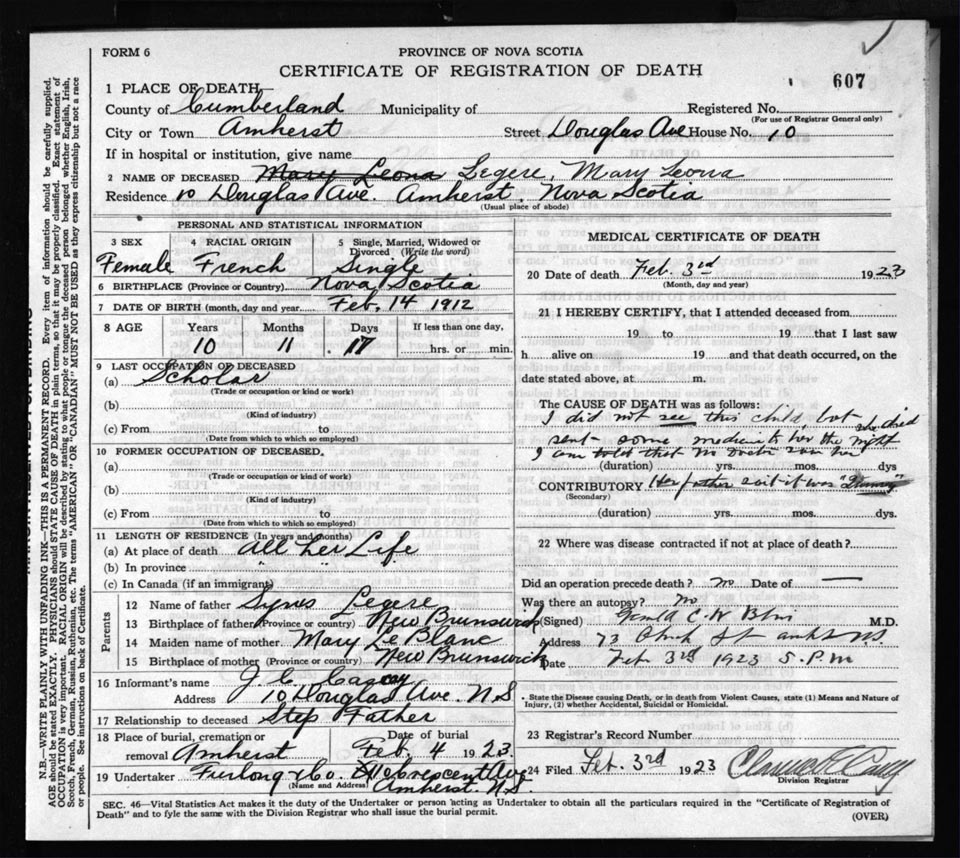 FORM 6
PROVINCE OF NOVA SCOTIA
CERTIFICATE OF REGISTRATION OF DEATH
607
1 PLACE OF DEATH—
County of Cumberland Municipality of Registered No.
(For use of Registrar General only)
City or Town Amherst Street Douglas Ave House No. 10
If in hospital or institution, give name
2 NAME OF DECEASED Mary Leona Legere, Mary Leona
Residence 10 Douglas Ave. Amherst, Nova Scotia
(Usual place of abode)
PERSONAL AND STATISTICAL INFORMATION
3 SEX 4 RACIAL ORIGIN 5 Single, Married, Widowed or Divorced (Write the word)
Female French Single
6 BIRTHPLACE (Province or Country) Nova Scotia
7 DATE OF BIRTH (month, day and year) Feb. 14 1912
8 AGE Years Months Days If less than one day,
10 11 17 hrs. or min.
9 LAST OCCUPATION OF DECEASED
(a) Scholar
(Trade or occupation or kind or work)
(b)
(Kind of industry)
(c) From to
(Date from which to which so employed)
10 FORMER OCCUPATION OF DECEASED.
(a)
(Trade or occupation or kind of work)
(b)
(Kind of industry)
(c) From to
(Date from which to which so employed)
11 LENGTH OF RESIDENCE (In years and months)
(a) At place of death All Her Life
(b) In province
(c) In Canada (if an immigrant)
Parents
12 Name of father Legere
13 Birthplace of father (Province or country) New Brunswick
14 Maiden name of mother Mary Le Blanc
15 Birthplace of mother (Province or country) New Brunswick
16 Informant's name J. C.
Address 10 Douglas Ave. N.S
17 Relationship to deceased Step Father
18 Place of burial, cremation or Date of burial
removal Amherst Feb. 4 1923
19 Undertaker Furlong & Co. Crescent Ave
(Name and Address) Amherst. N.S.
MEDICAL CERTIFICATE OF DEATH
20 Date of death Feb. 3rd 1923
(Month, day and year)
21 I HEREBY CERTIFY, that I attended deceased from
19 to 19 that I last saw
h alive on 19 and that death occurred, on the
date stated above, at m.
The CAUSE OF DEATH was as follows:
I did not see this child, but
sent some medicine to her the night she died
I am told that no doctor saw her
(duration) yrs. mos. dys
CONTRIBUTORY Her father said it was
(Secondary)
(duration) yrs. mos. dys.
22 Where was disease contracted if not at place of death?
Did an operation precede death? no Date of —
Was there an autopsy? no
(Signed) C. W M.D.
Address 73 Church St N.S.
Date Feb 3rd 1923 5 P.M
• State the Disease causing Death, or in death from Violent Causes, state (1) Means and Nature of Injury, (2) whether Accidental, Suicidal or Homicidal.
23 Registrar's Record Number
24 Filed Feb. 3rd 1923
Division Registrar
SEC. 46—Vital Statistics Act makes it the duty of the Undertaker or person acting as Undertaker to obtain all the particulars required in the "Certificate of Registration of
Death" and to fyle the same with the Division Registrar who shall issue the burial permit.
(OVER)
N.B.—WRITE PLAINLY WITH UNFADING INK—THIS IS A PERMANENT RECORD. Every item of information should be carefully supplied.
AGE should be stated EXACTLY. PHYSICIANS should STATE CAUSE OF DEATH in plain terms, so that it may be properly classified. Exact statement of
OCCUPATION is very important. RACIAL ORIGIN will be described by stating to what people or tongue the deceased person belonged whether English, Irish,
Scotch, French, German, Russian, Ruthenian, etc. The terms "AMERICAN" OR "CANADIAN" MUST NOT BE USED as they express citizenship but not a race
or people. See instructions on back of Certificate.